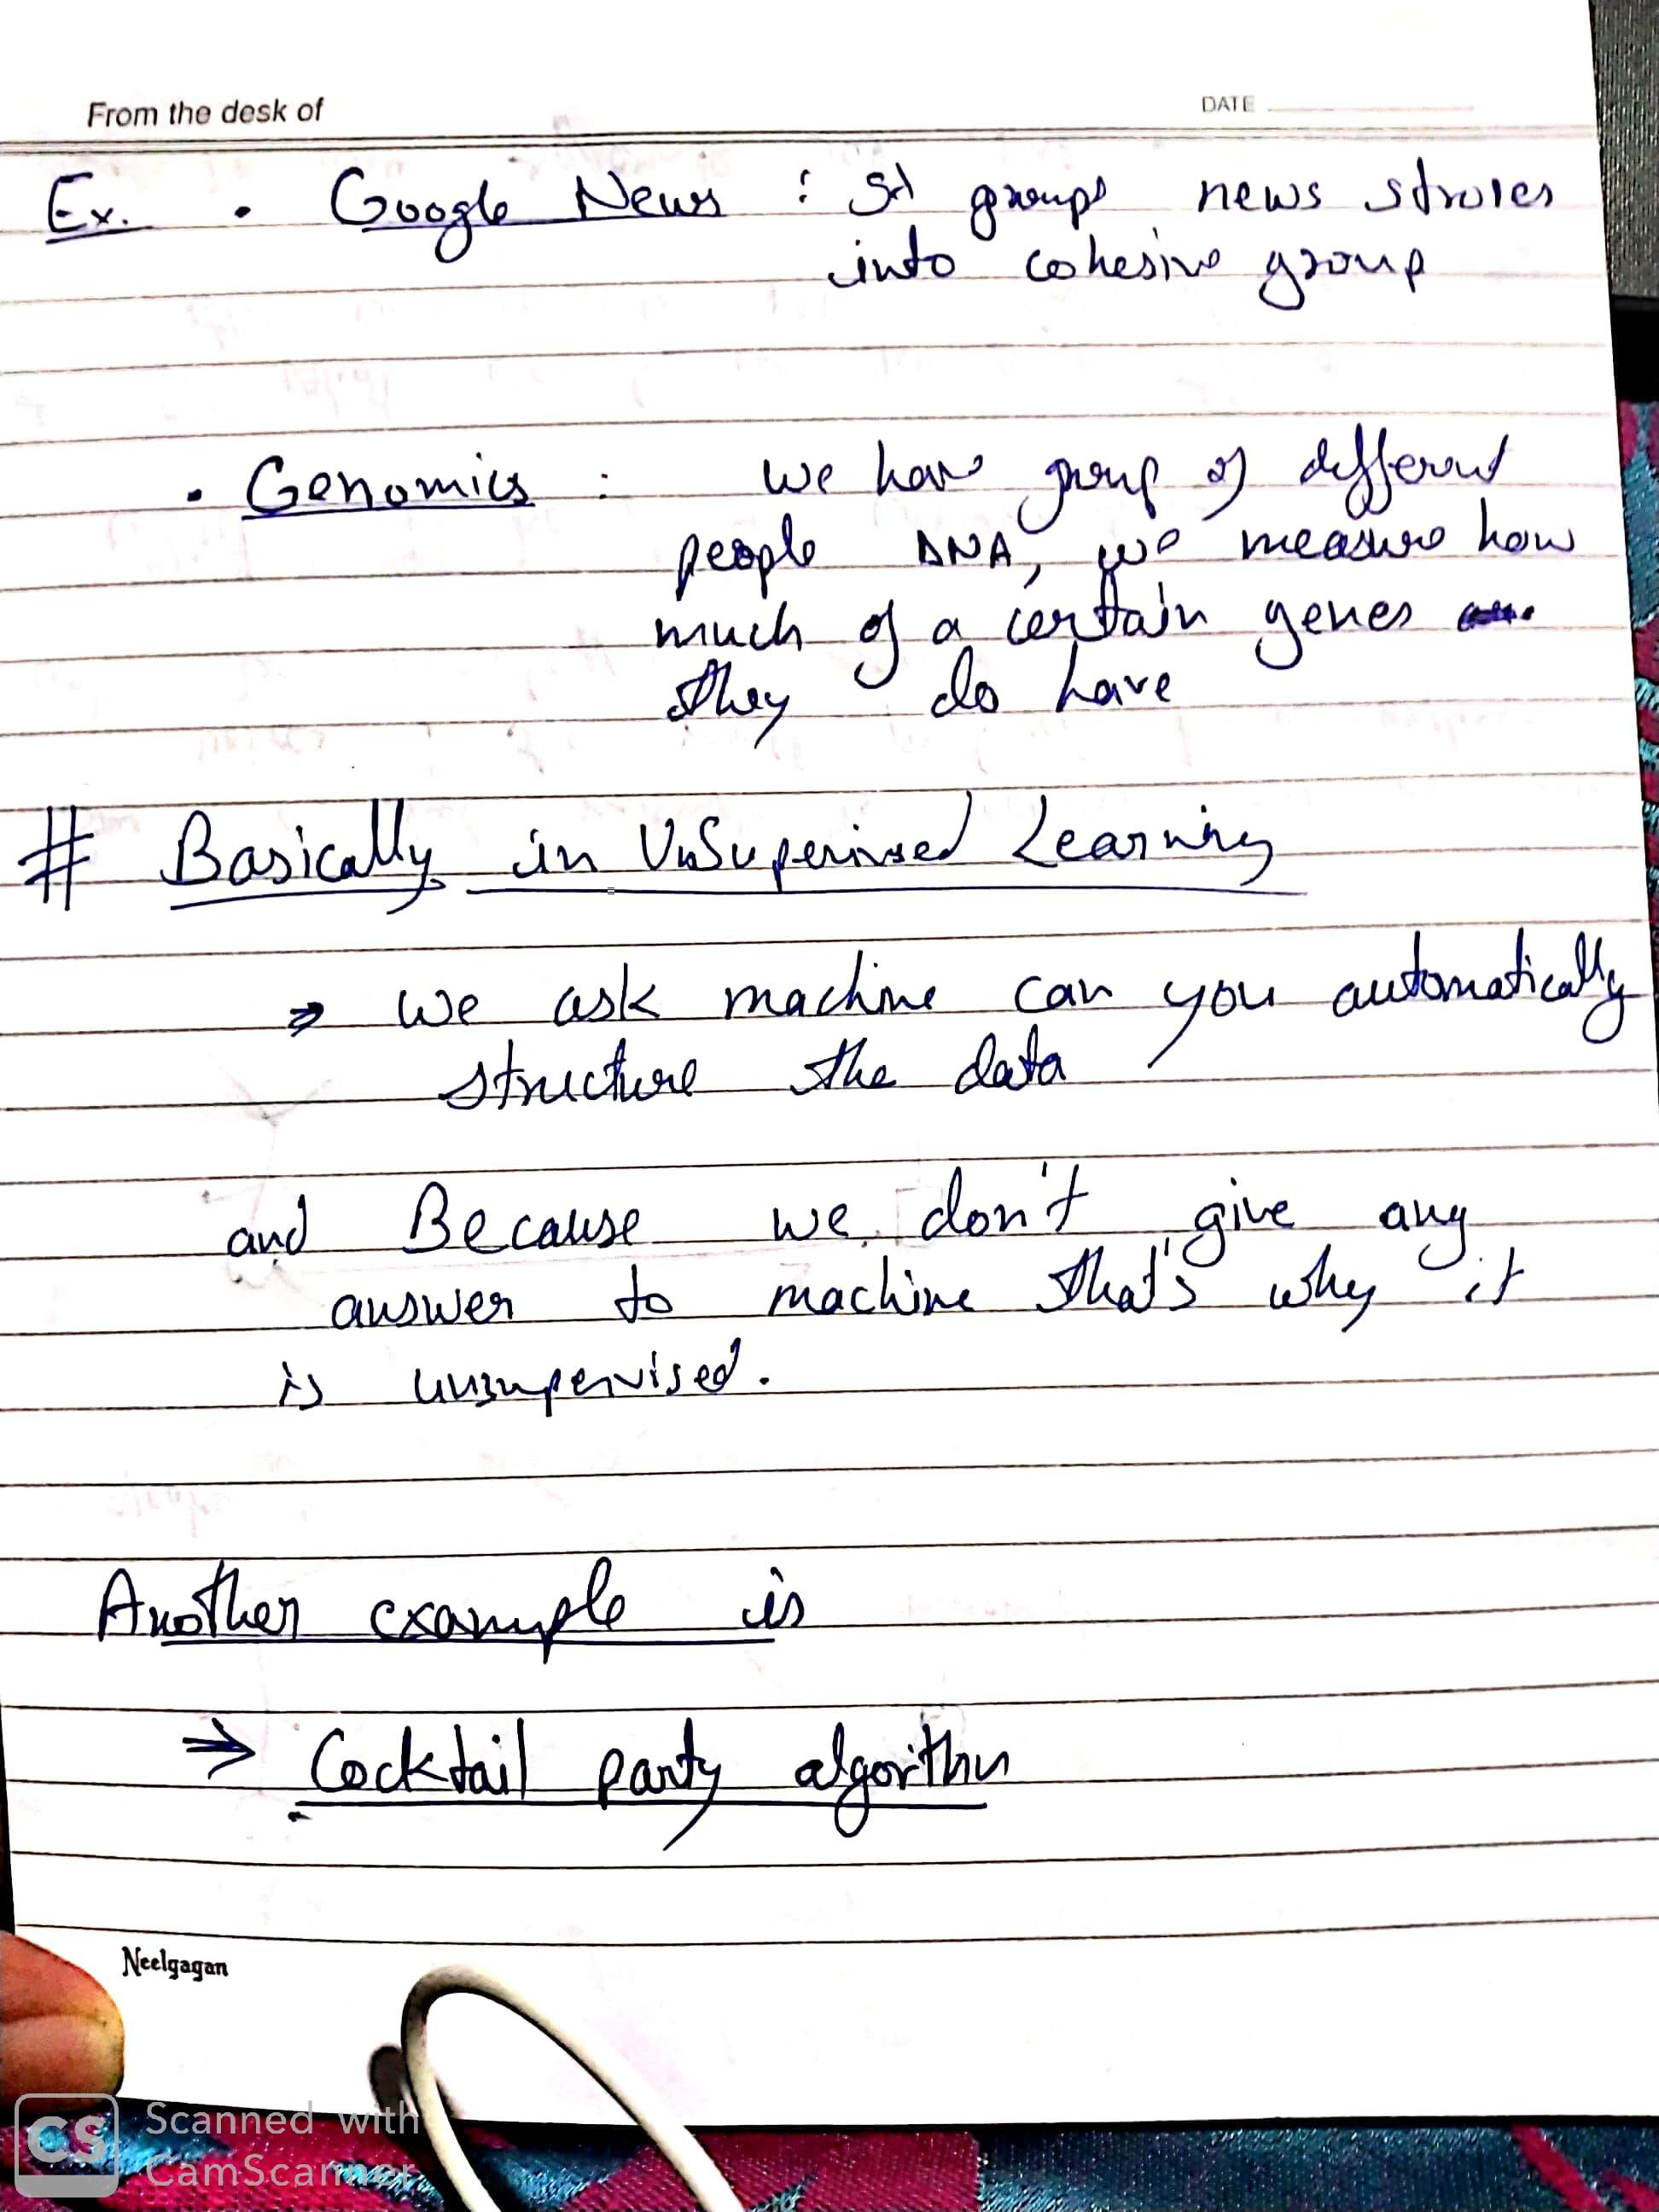 From the desk of
DATE
Ex. • Google News : It groups news stroies
into cohesive group
• Genomics : we have group of different
people DNA, we measure how
much of a certain genes
they do have
# Basically in UnSupervised Learning
⇒ we ask machine can you automatically
structure the data
and Because we don't give any
answer to machine that's why it
is unsupervised.
Another example is
⇒ Cocktail party algorithm
Neelgagan
CS Scanned with
CamScanner